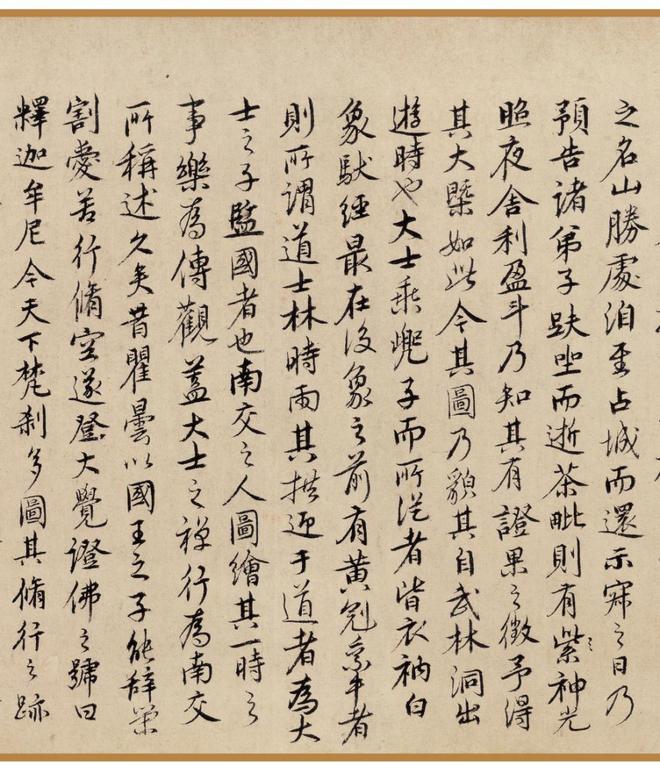 之名山勝處洎至占城而還示寂之日乃
預告諸弟子趺坐而逝茶毗則有紫神光
照夜舍利盈斗乃知其有證果之徵予得
其大槩如此今其圖乃貌其自武林洞出
遊時也大士乘兜子而所從者皆衣衲白
象馱經最在後象之前有黃冠者
則所謂道士林時雨其拱迎于道者為大
士之子監國者也南交之人圖繪其一時之
事樂為傳觀蓋大士之禪行為南交
所稱述久矣昔瞿曇以國王之子能辭榮
割愛苦行脩空遂登大覺證佛之號曰
釋迦牟尼今天下梵剎多圖其脩行之跡